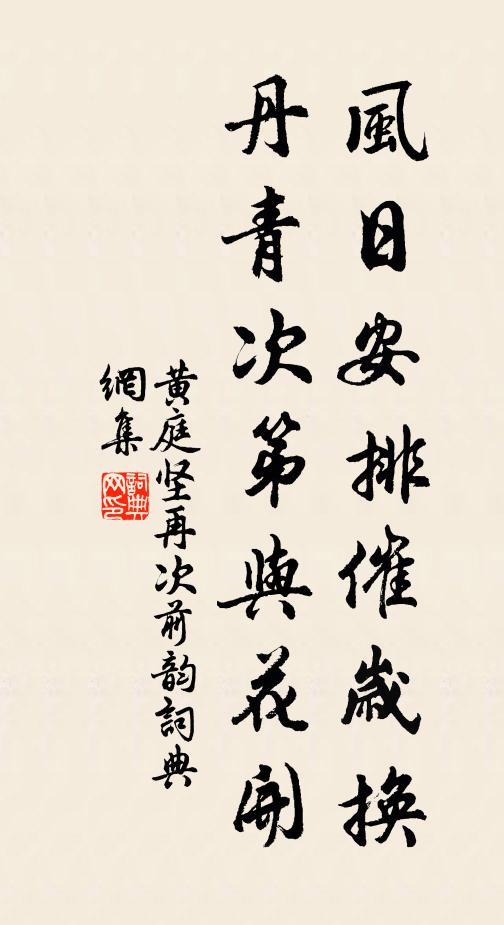 風日安排催歲換
丹青次第與花開
黃庭坚再次前韵詞典
網集
詞典
网印